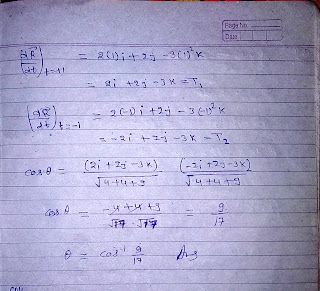 Page No.
Date
dR/dt)t=+1 = 2(1)i + 2j - 3(1)²k
= 2i + 2j - 3k = T₁
(dR/dt)t=-1 = 2(-1)i + 2j - 3(-1)²k
= -2i + 2j - 3k = T₂
cosθ = (2i + 2j - 3k)/√4+4+9 (-2i + 2j - 3k)/√4+4+9
cosθ = -4+4+9/√17 . √17 = 9/17
θ = cos⁻¹ 9/17 Ans